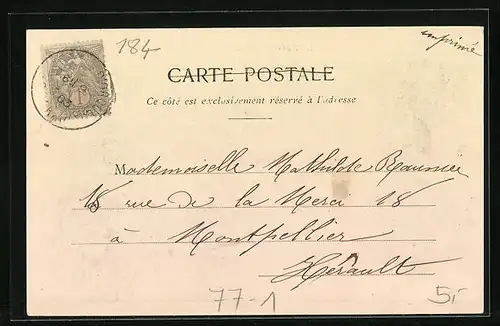 184
imprimé
CARTE POSTALE
Ce côté est exclusivement réservé à l'adresse
Mademoiselle Mathilde
18 rue de la Merci 18
à Montpellier
Hérault
77-1
5,-